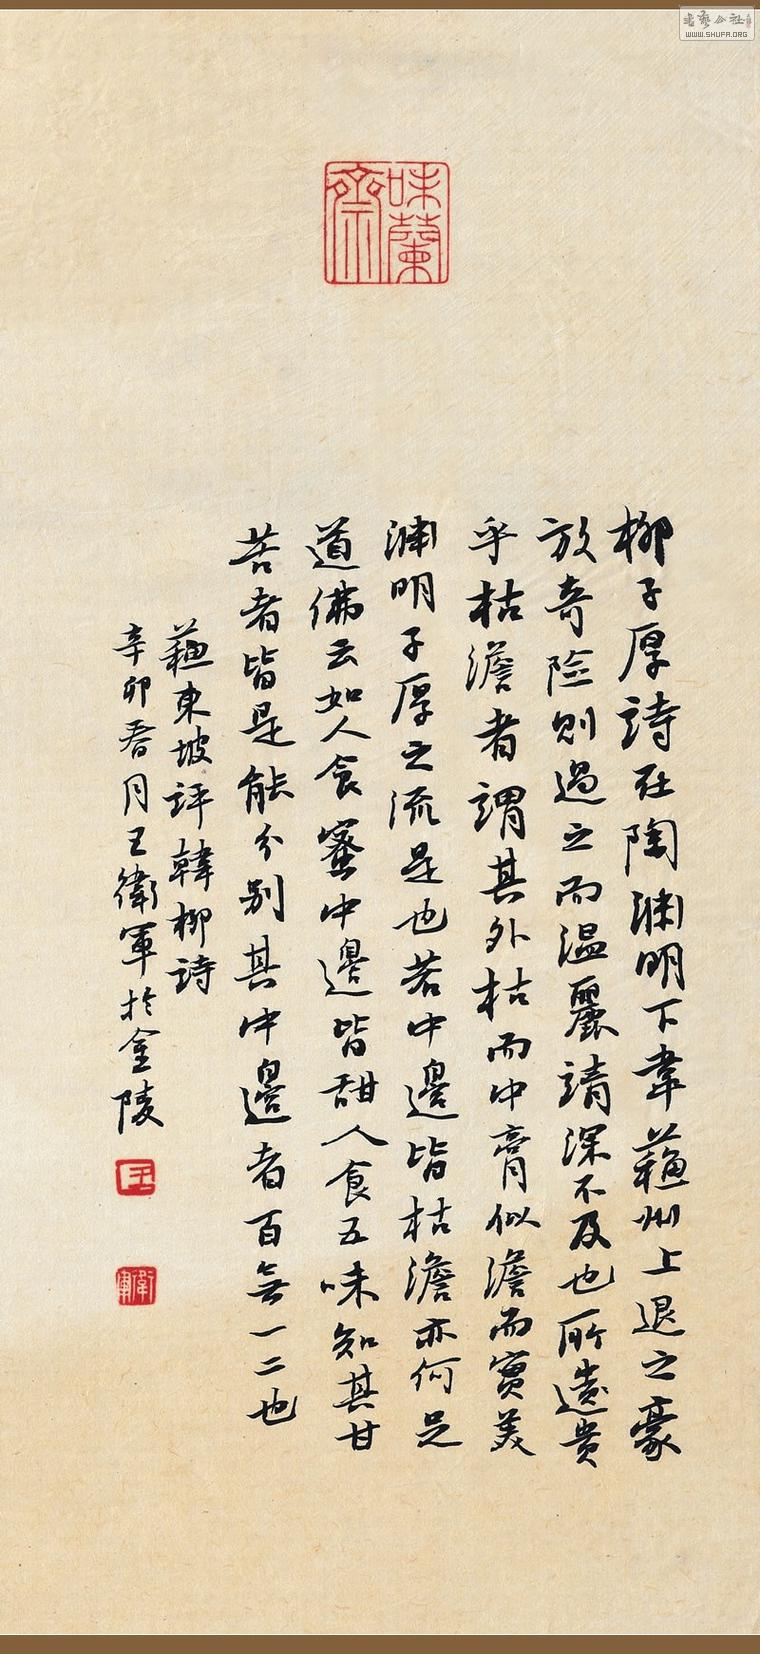 柳子厚詩在陶淵明下韋蘇州上退之豪
放奇险則過之而温麗靖深不及也所遗貴
乎枯澹者謂其外枯而中膏似澹而實美
淵明子厚之流是也若中邊皆枯澹亦何足
道佛云如人食蜜中邊皆甜人食五味知其甘
苦者皆是能分别其中邊者百無一二也
蘇東坡評韓柳詩
辛卯春月王衛軍於金陵
王
衛軍
味蘭齋
書藝公社
WWW.SHUFA.ORG